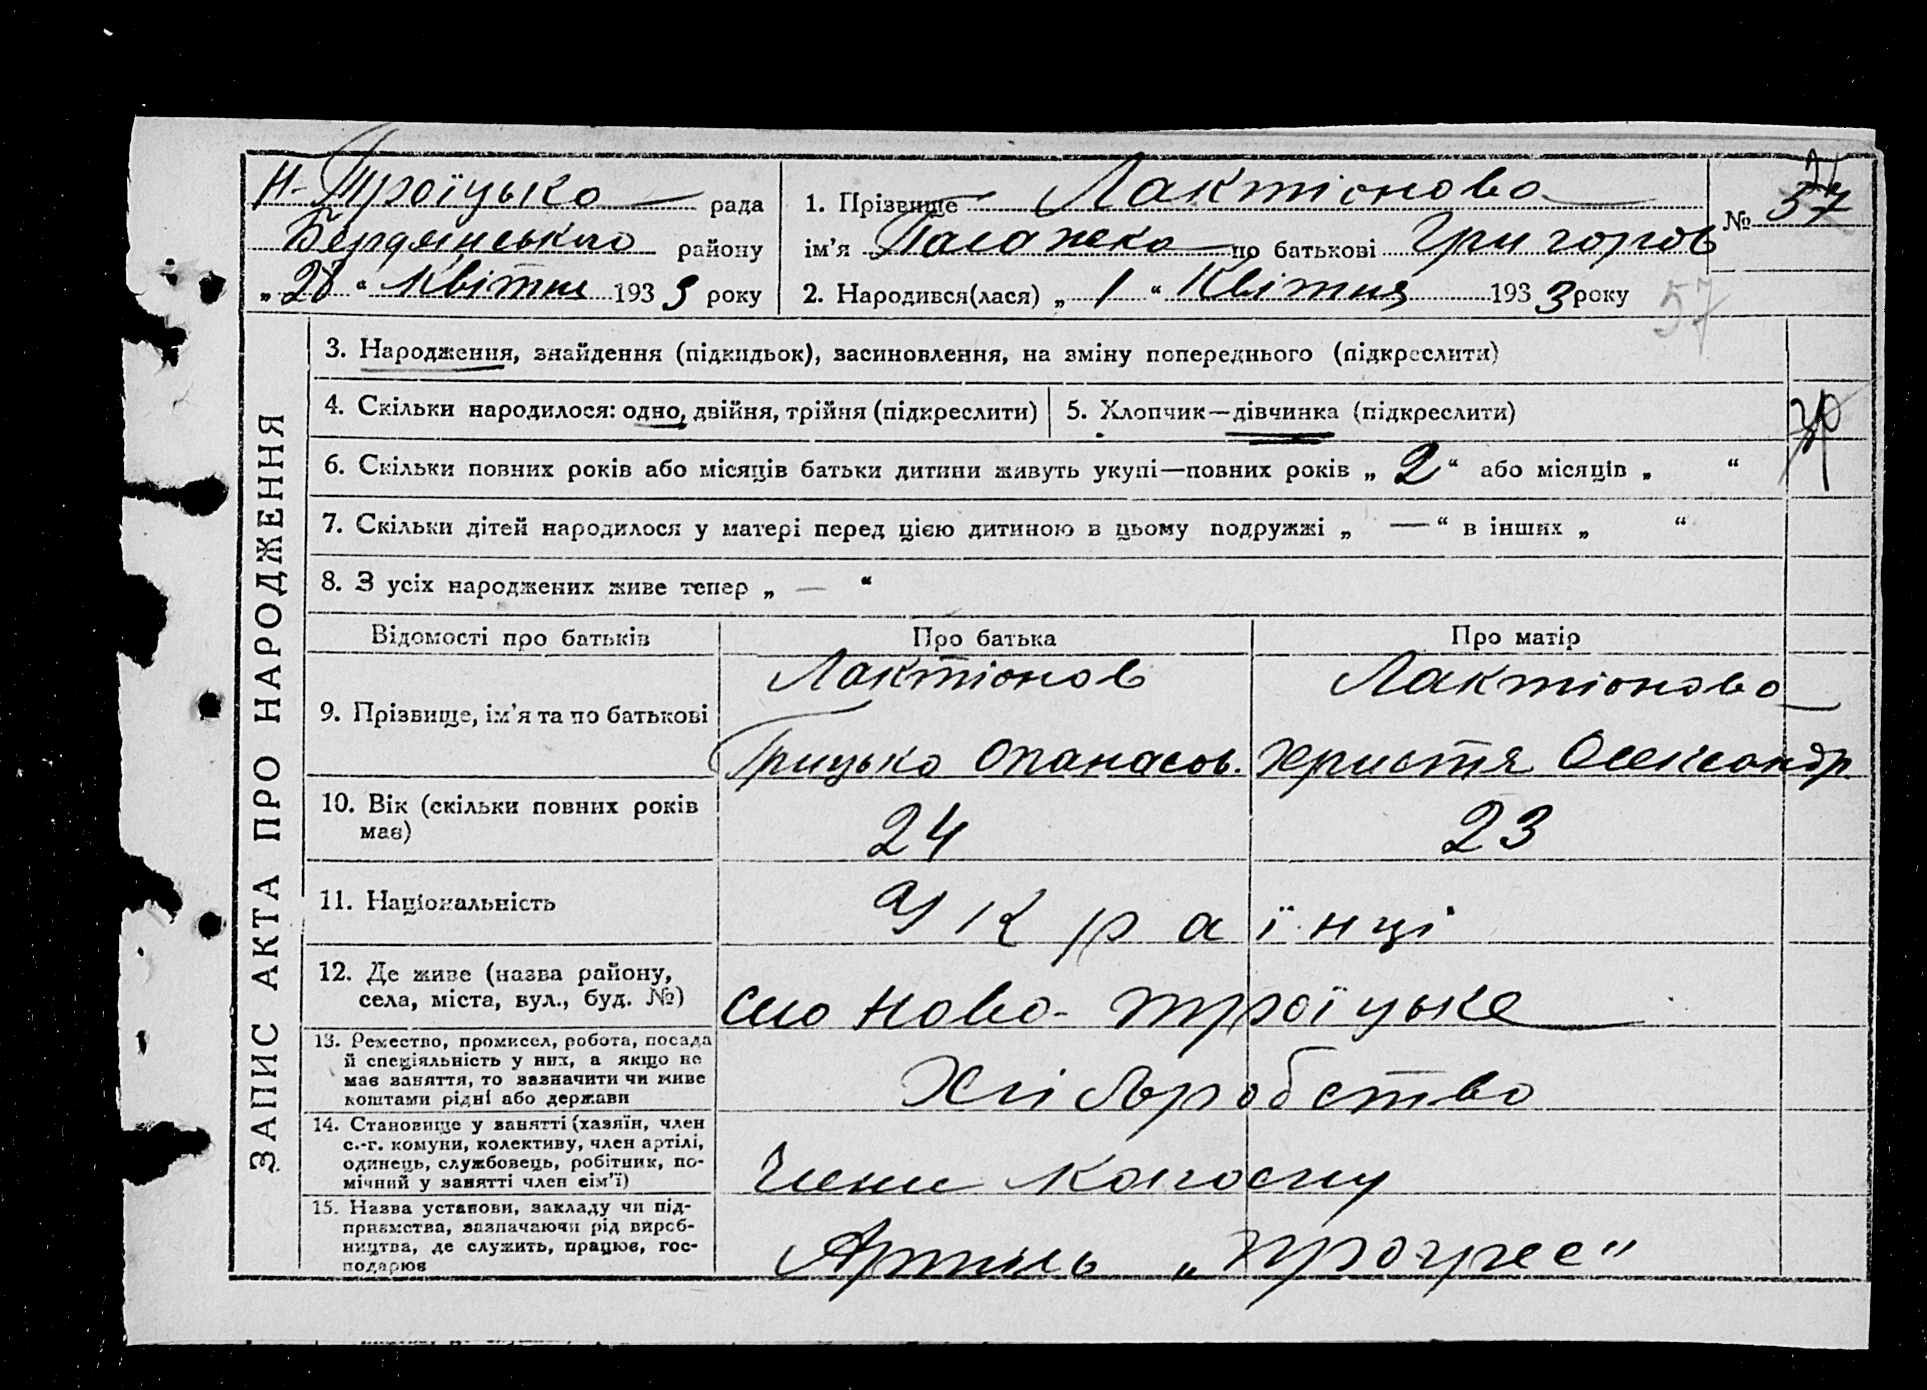 Н-Троїцька рада
Бердянського району
„28“ Квітня 1933 року
1. Прізвище Лактіонова
ім’я Палажка по батькові Григоров
2. Народився(лася) „1“ Квітня 1933 року
№ 37
57
ЗАПИС АКТА ПРО НАРОДЖЕННЯ
3. Народження, знайдення (підкидьок), засиновлення, на зміну попереднього (підкреслити)
4. Скільки народилося: одно, двійня, трійня (підкреслити)
5. Хлопчик—дівчинка (підкреслити)
6. Скільки повних років або місяців батьки дитини живуть укупі—повних років „2“ або місяців „ “
7. Скільки дітей народилося у матері перед цією дитиною в цьому подружжі „ — “ в інших „ “
8. З усіх народжених живе тепер „ — “
Відомості про батьків
Про батька
Про матір
9. Прізвище, ім’я та по батькові
Лактіонов
Грицько Опанасов.
Лактіонова
Христя Олександр
10. Вік (скільки повних років
має)
24
23
11. Національність
Українці
12. Де живе (назва району,
села, міста, вул., буд. №)
село Ново-Троїцьке
13. Ремество, промисел, робота, посада
й спеціяльність у них, а якщо не
має заняття, то зазначити чи живе
коштами рідні або держави
Хліборобство
14. Становище у занятті (хазяїн, член
с.-г. комуни, колективу, член артілі,
одинець, службовець, робітник, по-
мічний у занятті член сім’ї)
Члени колгоспу
15. Назва установи, закладу чи під-
приємства, зазначаючи рід вироб-
ництва, де служить, працює, гос-
подарює
Артиль „Прогрес“